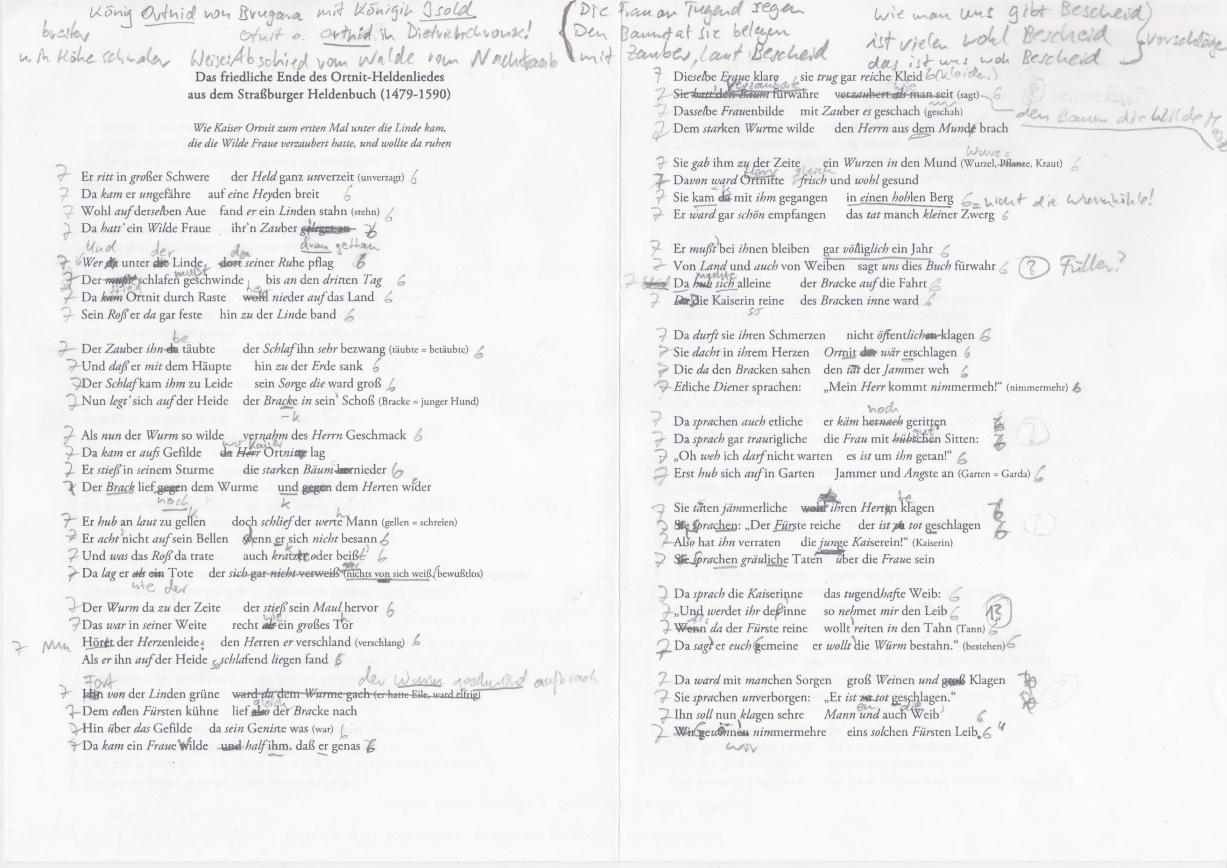 König Ortnid von Brugara mit Königin Isold
breiter Otnit o. Ortnid in Dietrichschronik!
u. in Höhe schmaler Weise: Abschied vom Walde vom
Das friedliche Ende des Ortnit-Heldenliedes
aus dem Straßburger Heldenbuch (1479-1590)
Wie Kaiser Ortnit zum ersten Mal unter die Linde kam,
die die Wilde Fraue verzaubert hatte, und wollte da ruhen
7 Er ritt in großer Schwere der Held ganz unverzeit (unverzagt) 6
7 Da kam er ungefähre auf eine Heyden breit 6
7 Wohl auf derselben Aue fand er ein Linden stahn (stehn) 6
7 Da hatt' ein Wilde Fraue ihr'n Zauber geleget an 6
Und der der dran gethan
7 Wer da unter die Linde dort seiner Ruhe pflag 6
7 Der mußt schlafen geschwinde bis an den dritten Tag 6
7 Da kam Ortnit durch Raste wohl nieder auf das Land 6
7 Sein Roß er da gar feste hin zu der Linde band 6
be
7 Der Zauber ihn da täubte der Schlaf ihn sehr bezwang (täubte = betäubte) 6
7 Und daß er mit dem Häupte hin zu der Erde sank 6
7 Der Schlaf kam ihm zu Leide sein Sorge die ward groß 6
7 Nun legt' sich auf der Heide der Bracke in sein' Schoß (Bracke = junger Hund)
-k
7 Als nun der Wurm so wilde vernahm des Herrn Geschmack 6
7 Da kam er aufs Gefilde da Herr Ortnitte lag
7 Er stieß in seinem Sturme die starken Bäum hernieder 6
7 Der Brack lief gegen dem Wurme und gegen dem Herren wider
nach k
7 Er hub an laut zu gellen doch schlief der werte Mann (gellen = schreien)
7 Er acht' nicht auf sein Bellen wenn er sich nicht besann 6
7 Und was das Roß da trate auch kratzte oder beißt 6
7 Da lag er als ein Tote der sich gar nicht verweiß (nichts von sich weiß, bewußtlos)
wie der
7 Der Wurm da zu der Zeite der stieß sein Maul hervor 6
7 Das war in seiner Weite recht als ein großes Tor
7 Nun Höret der Herzenleide: den Herren er verschland (verschlang) 6
Als er ihn auf der Heide so schlafend liegen fand 6
Fort der Wurm geschwind aufbrach
7 Hin von der Linden grüne ward da dem Wurme gach (er hatte Eile, ward eifrig)
7 Dem edlen Fürsten kühne lief also der Bracke nach
7 Hin über das Gefilde da sein Geniste was (war) 6
7 Da kam ein Fraue wilde und half ihm, daß er genas 6
Die Frau an Tugend segen
Den Baum tat sie belegen
mit Zauber, laut Bescheid
wie man uns gibt Bescheid
ist vielen wohl Bescheid
das ist uns woh Bescheid
Vorschläge
7 Dieselbe Fraue klare sie trug gar reiche Kleid 6 (kleider)
7 Sie hatt den Baum fürwahre verzaubert als man seit (sagt) 6
7 Dasselbe Frauenbilde mit Zauber es geschach (geschah)
7 Dem starken Wurme wilde den Herrn aus dem Munde brach
den Baum die Wilde
7 Sie gab ihm zu der Zeite ein Wurzen in den Mund (Wurzel, Pflanze, Kraut) 6
7 Davon ward Ortnitte frisch und wohl gesund
7 Sie kam da mit ihm gegangen in einen hohlen Berg 6 = nicht die Wurmhöhle!
7 Er ward gar schön empfangen das tat manch kleiner Zwerg 6
7 Er mußt' bei ihnen bleiben gar völliglich ein Jahr 6
7 Von Land und auch von Weiben sagt uns dies Buch fürwahr 6 ? Füller?
7 Da hub sich alleine der Bracke auf die Fahrt 6
7 Daß die Kaiserin reine des Bracken inne ward 6
so
7 Da durft sie ihren Schmerzen nicht öffentlichen klagen 6
7 Sie dacht in ihrem Herzen Ortnit der wär erschlagen 6
7 Die da den Bracken sahen den tät der Jammer weh 6
7 Etliche Diener sprachen: „Mein Herr kommt nimmermeh!“ (nimmermehr) 6
noch
7 Da sprachen auch etliche er käm hernach geritten 6
7 Da sprach gar traurigliche die Frau mit hübschen Sitten: 6
7 „Oh weh ich darf nicht warten es ist um ihn getan!“ 6
7 Erst hub sich auf in Garten Jammer und Angste an (Garten = Garda) 6
7 Sie täten jämmerliche wohl ihren Herren klagen 6
7 Sie sprachen: „Der Fürste reiche der ist zu tot geschlagen 6
7 Also hat ihn verraten die junge Kaiserein!“ (Kaiserin)
7 Sie sprachen gräuliche Taten über die Fraue sein
7 Da sprach die Kaiserinne das tugendhafte Weib:
7 „Und werdet ihr des inne so nehmet mir den Leib 6
7 Wenn da der Fürste reine wollt reiten in den Tahn (Tann) 6
7 Da sagt' er euch gemeine er wollt' die Würm bestahn.“ (bestehen) 6
7 Da ward mit manchen Sorgen groß Weinen und groß Klagen
7 Sie sprachen unverborgen: „Er ist zu tot geschlagen.“
7 Ihn soll nun klagen sehre Mann und auch Weib 6
7 Wir gewinnen nimmermehre eins solchen Fürsten Leib. 6 “